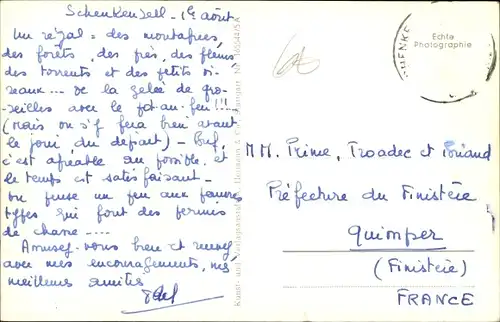 Schenkenzell - 1er août
Un régal : des montagnes,
des forêts, des prés, des fleurs
des torrents et des petits oi-
seaux... de la gelée de gro-
seilles avec le pot-au-feu !!!
(Mais on s'y fera bien avant
le jour du départ) - Bref,
c'est agréable au possible, et
le temps est satisfaisant -
on pense un peu aux pauvres
types qui font des permis
de chasse ....
Amusez-vous bien et recevez
avec mes encouragements, mes
meilleures amitiés
Echte
Photographie
MM. Prime, Troadec et
Préfecture du Finistère
Quimper
(Finistère)
FRANCE